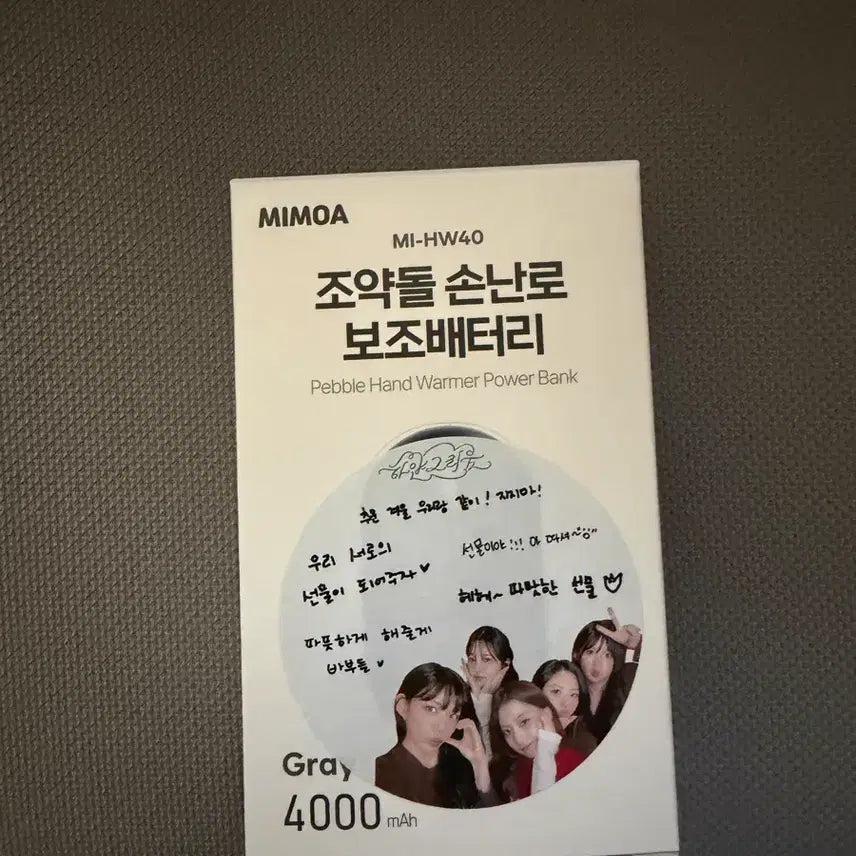 MIMOA
MI-HW40
조약돌 손난로
보조배터리
Pebble Hand Warmer Power Bank
추운 겨울 우리랑 같이! 지지마!
우리 서로의
선물이 되어주자♥
선물이야!!! 아 따셔~
헤헤~ 따땃한 선물
따뜻하게 해줄게
바부들♥
Gray
4000 mAh